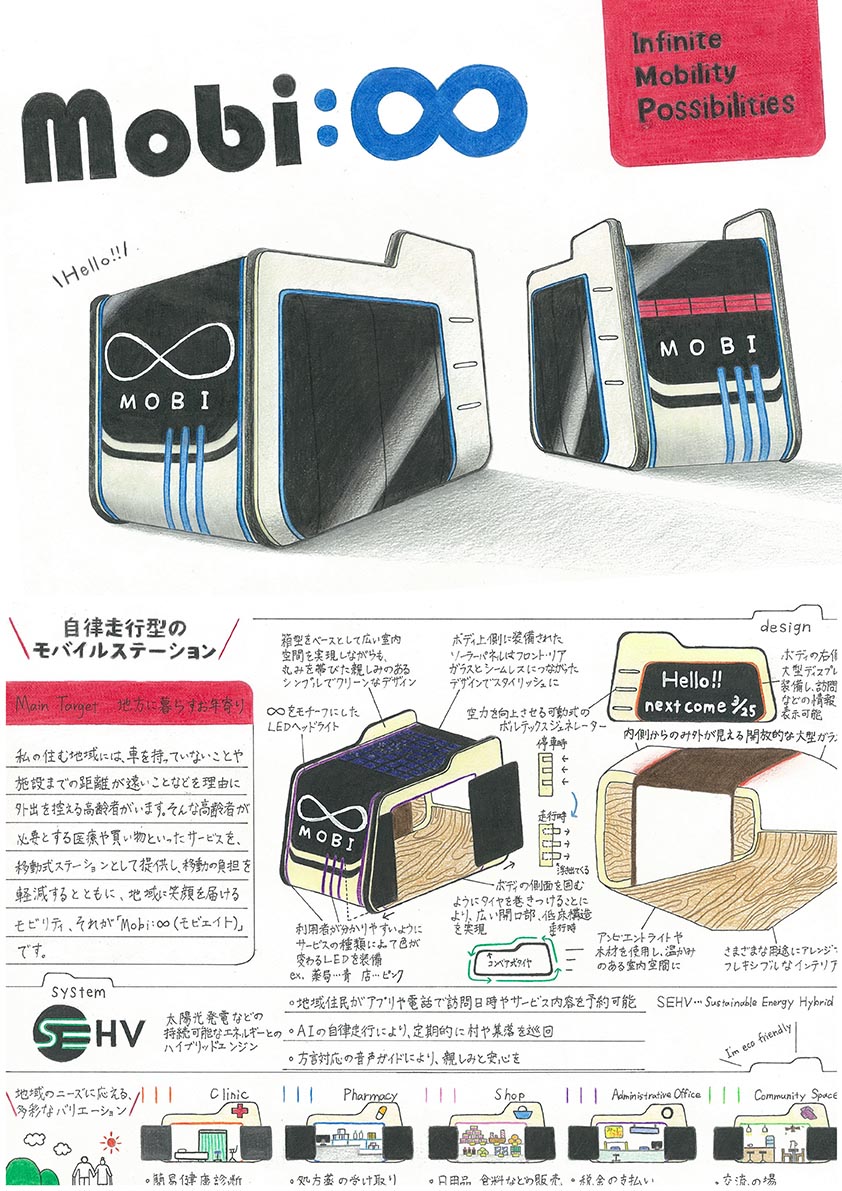 Mobi:∞
Infinite
Mobility
Possibilities
\Hello!!/
∞
MOBI
MOBI
自律走行型の
モバイルステーション
Main Target 地方に暮らすお年寄り
私の住む地域には、車を持っていないことや
施設までの距離が遠いことなどを理由に
外出を控える高齢者がいます。そんな高齢者が
必要とする医療や買い物といったサービスを、
移動式ステーションとして提供し、移動の負担を
軽減するとともに、地域に笑顔を届ける
モビリティ、それが「Mobi:∞(モビエイト)」
です。
design
箱型をベースとして広い室内
空間を実現しながらも、
丸みを帯びた親しみのある
シンプルでクリーンなデザイン
ボディ上側に装備された
ソーラーパネルはフロント・リア
ガラスとシームレスにつながった
デザインでスタイリッシュに
∞をモチーフにした
LEDヘッドライト
空力を向上させる可動式の
ボルテックスジェネレーター
停車時
走行時
浮き出てくる
Hello!!
next come 3/25
ボディの右側
大型ディスプレ
装備し、訪問
などの情報
表示可能
内側からのみ外が見える開放的な大型ガラ
MOBI
利用者が分かりやすいように
サービスの種類によって色が
変わるLEDを装備
ex. 薬局…青 店…ピンク
ボディの側面を囲む
ようにタイヤを巻きつけることに
より、広い開口部、低床構造
を実現
走行時
コンベアボタイヤ
アンビエントライトや
木材を使用し、温かみ
のある室内空間に
さまざまな用途にアレンジ
フレキシブルなインテリア
system
SEHV
太陽光発電などの
持続可能なエネルギーとの
ハイブリッドエンジン
・地域住民がアプリや電話で訪問日時やサービス内容を予約可能
・AIの自律走行により、定期的に村や集落を巡回
・方言対応の音声ガイドにより、親しみと安心を
SEHV… Sustainable Energy Hybrid
I'm eco friendly
地域のニーズに応える、
多彩なバリエーション
Clinic
Pharmacy
Shop
Administrative Office
Community Space
・簡易健康診断
・処方薬の受け取り
・日用品、食料などの販売
・税金の支払い
・交流の場